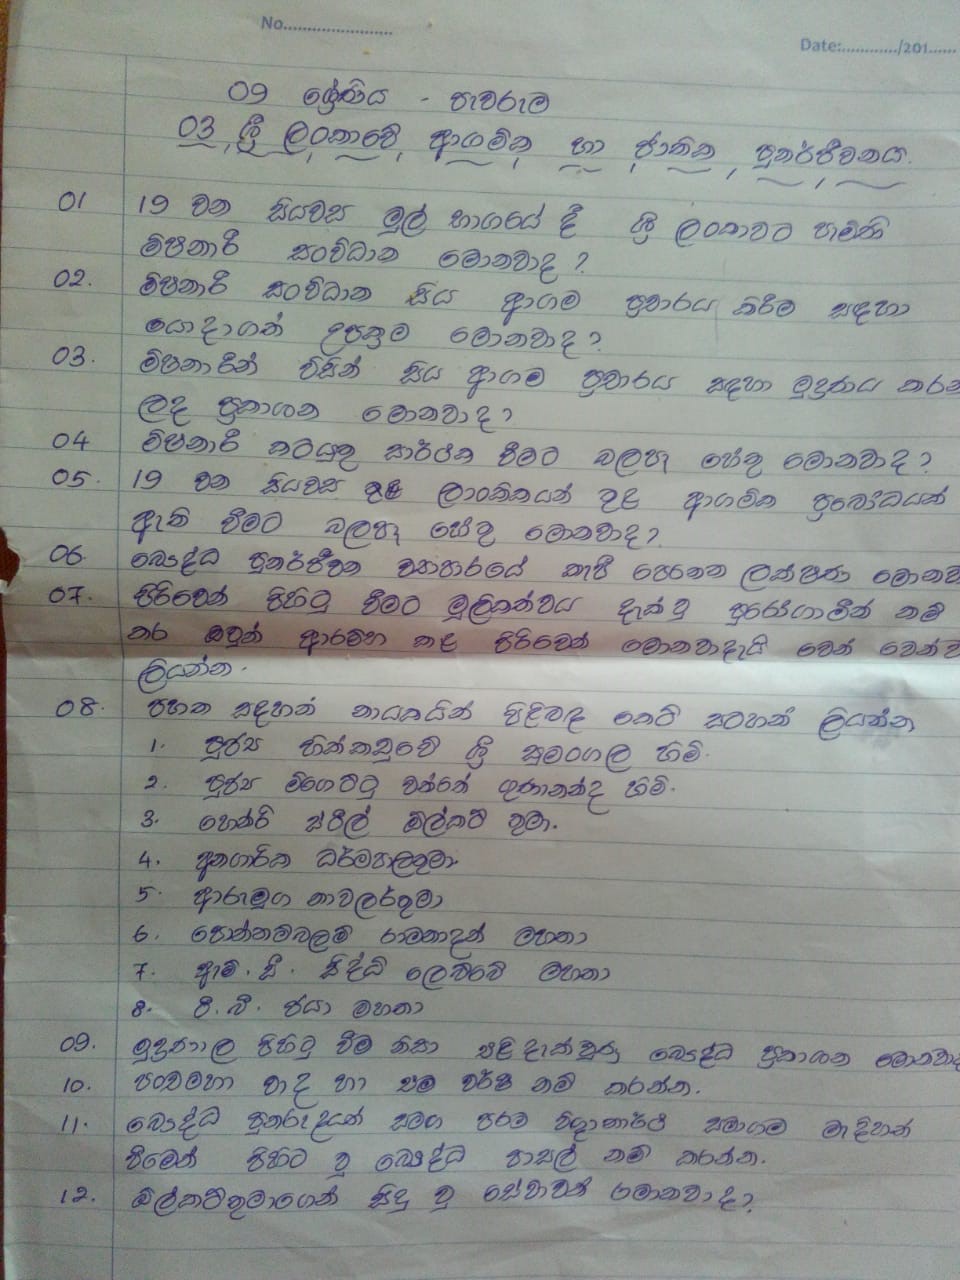 No.......................
Date:............/201......
09 ශ්‍රේණිය - පැවරුම
03 ශ්‍රී ලංකාවේ ආගමික හා ජාතික පුනර්ජීවනය.
01 19 වන සියවස මුල් භාගයේ දී ශ්‍රී ලංකාවට පැමිණි
මිෂනාරි සංවිධාන මොනවාද?
02. මිෂනාරි සංවිධාන සිය ආගම ප්‍රචාරය කිරීම සඳහා
යොදාගත් උපක්‍රම මොනවාද?
03. මිෂනාරීන් විසින් සිය ආගම ප්‍රචාරය සඳහා මුද්‍රණය කරන
ලද ප්‍රකාශන මොනවාද?
04 මිෂනාරි කටයුතු සාර්ථක වීමට බලපෑ හේතු මොනවාද?
05. 19 වන සියවස ලාංකිකයන් තුළ ආගමික ප්‍රබෝධයක්
ඇති වීමට බලපෑ හේතු මොනවාද?
06. බෞද්ධ පුනර්ජීවන ව්‍යාපාරයේ කැපී පෙනෙන ලක්ෂණ මොනවා
07. පිරිවෙන් පිහිටු වීමට මූලිකත්වය දැක්වූ පුරෝගාමීන් නම්
කර ඔවුන් ආරම්භ කළ පිරිවෙන් මොනවාදැයි වෙන් වෙන්ව
ලියන්න.
08. පහත සඳහන් නායකයින් පිළිබඳ කෙටි සටහන් ලියන්න
1. පූජ්‍ය හික්කඩුවේ ශ්‍රී සුමංගල හිමි.
2. පූජ්‍ය මිගෙට්ටුවත්තේ ගුණානන්ද හිමි.
3. හෙන්රි ස්ටීල් ඕල්කට් තුමා.
4. අනගාරික ධර්මපාලතුමා.
5. ආරුමුග නාවලර්තුමා
6. පොන්නම්බලම් රාමනාදන් මහතා
7. ඇම්. සී. සිද්ධි ලෙබ්බේ මහතා
8. ටී. බී. ජයා මහතා
09. මුද්‍රණාල පිහිටු වීම නිසා එළි දැක්වුණු බෞද්ධ ප්‍රකාශන මොනවාද
10. පංචමහා වාද හා එම වර්ෂ නම් කරන්න.
11. බෞද්ධ පුනරුදයත් සමග පරම විඥානාර්ථ සමාගම මැදිහත්
වීමෙන් පිහිට වූ බෞද්ධ පාසල් නම් කරන්න.
12. ඕල්කට්තුමාගෙන් සිදු වූ සේවාවන් මොනවාද?